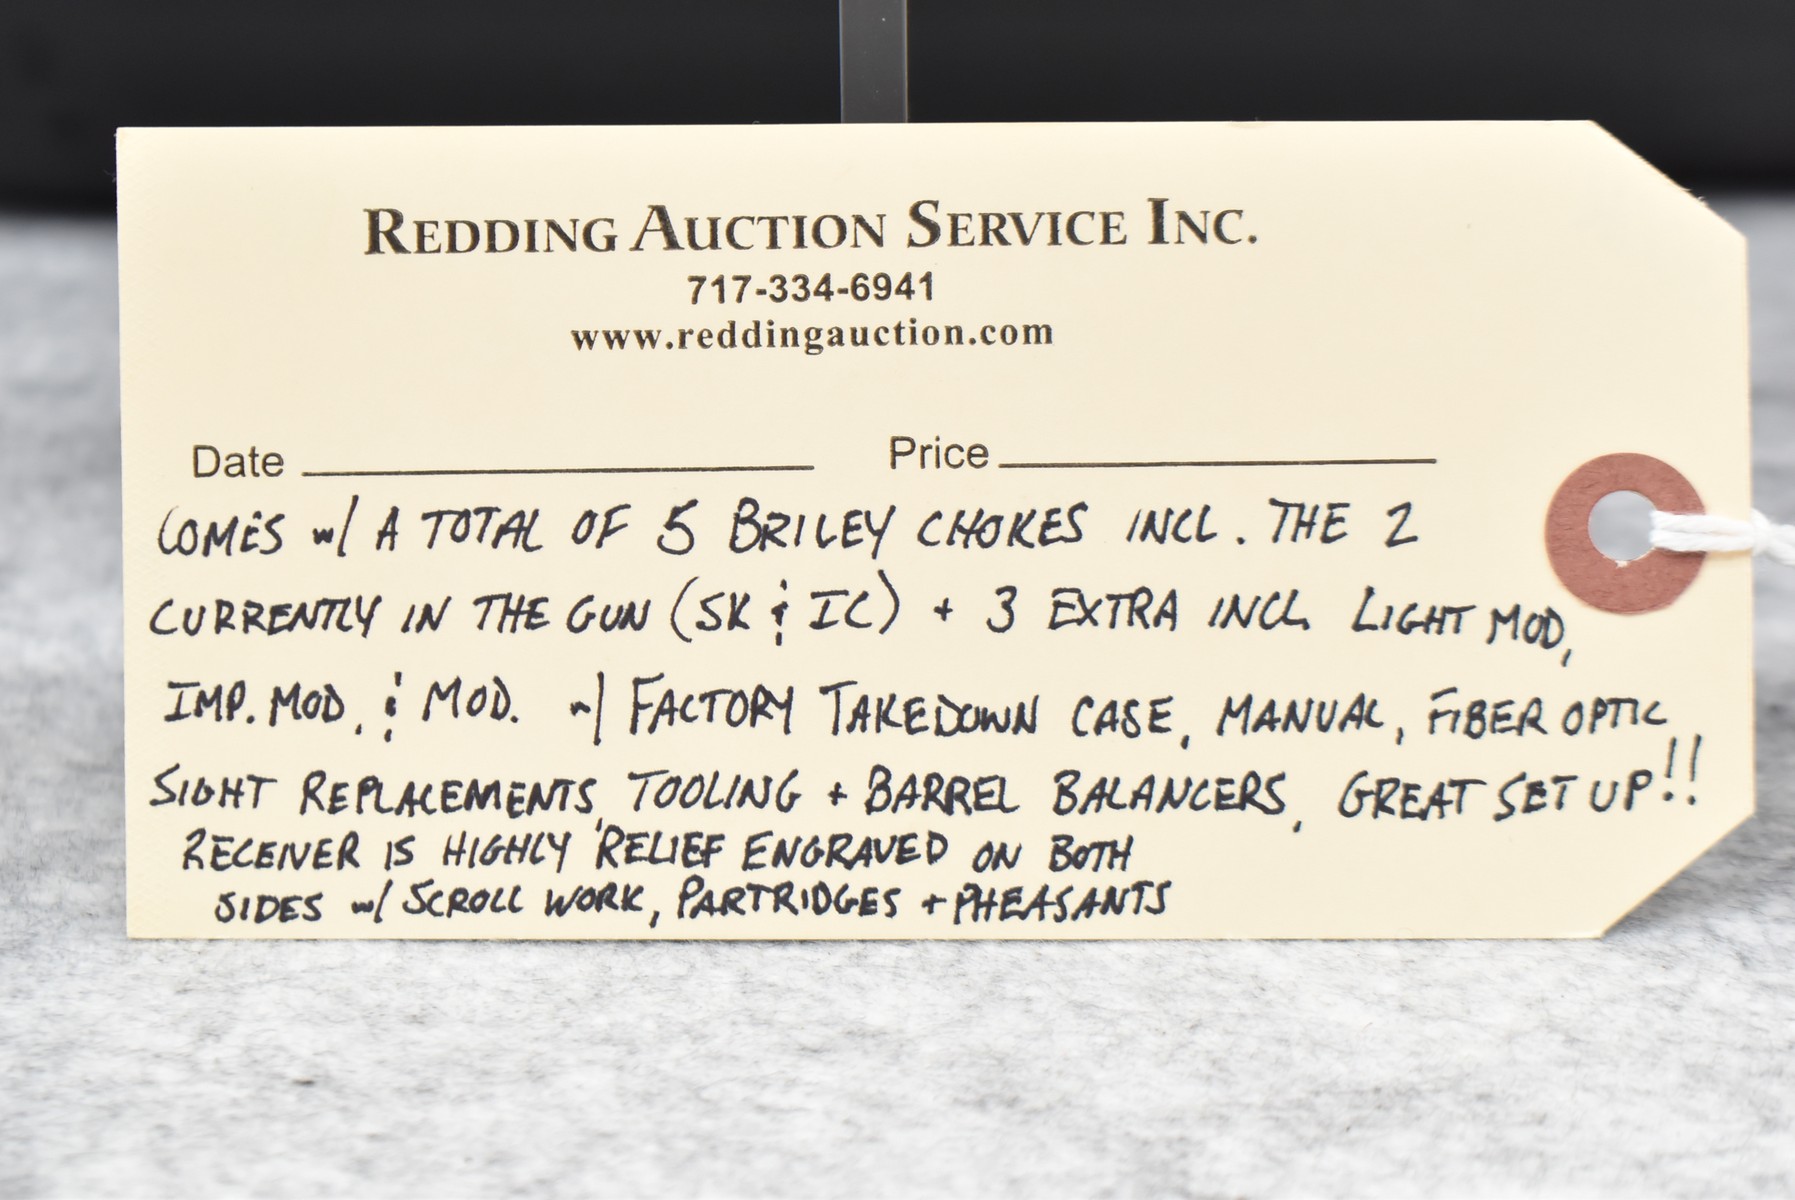 REDDING AUCTION SERVICE INC.
717-334-6941
www.reddingauction.com
Date Price
COMES w/ A TOTAL OF 5 BRILEY CHOKES INCL. THE 2
CURRENTLY IN THE GUN (SK & IC) + 3 EXTRA INCL. LIGHT MOD,
IMP. MOD, & MOD. w/ FACTORY TAKEDOWN CASE, MANUAL, FIBER OPTIC
SIGHT REPLACEMENTS, TOOLING + BARREL BALANCERS, GREAT SET UP!!
RECEIVER IS HIGHLY RELIEF ENGRAVED ON BOTH
SIDES w/ SCROLL WORK, PARTRIDGES + PHEASANTS